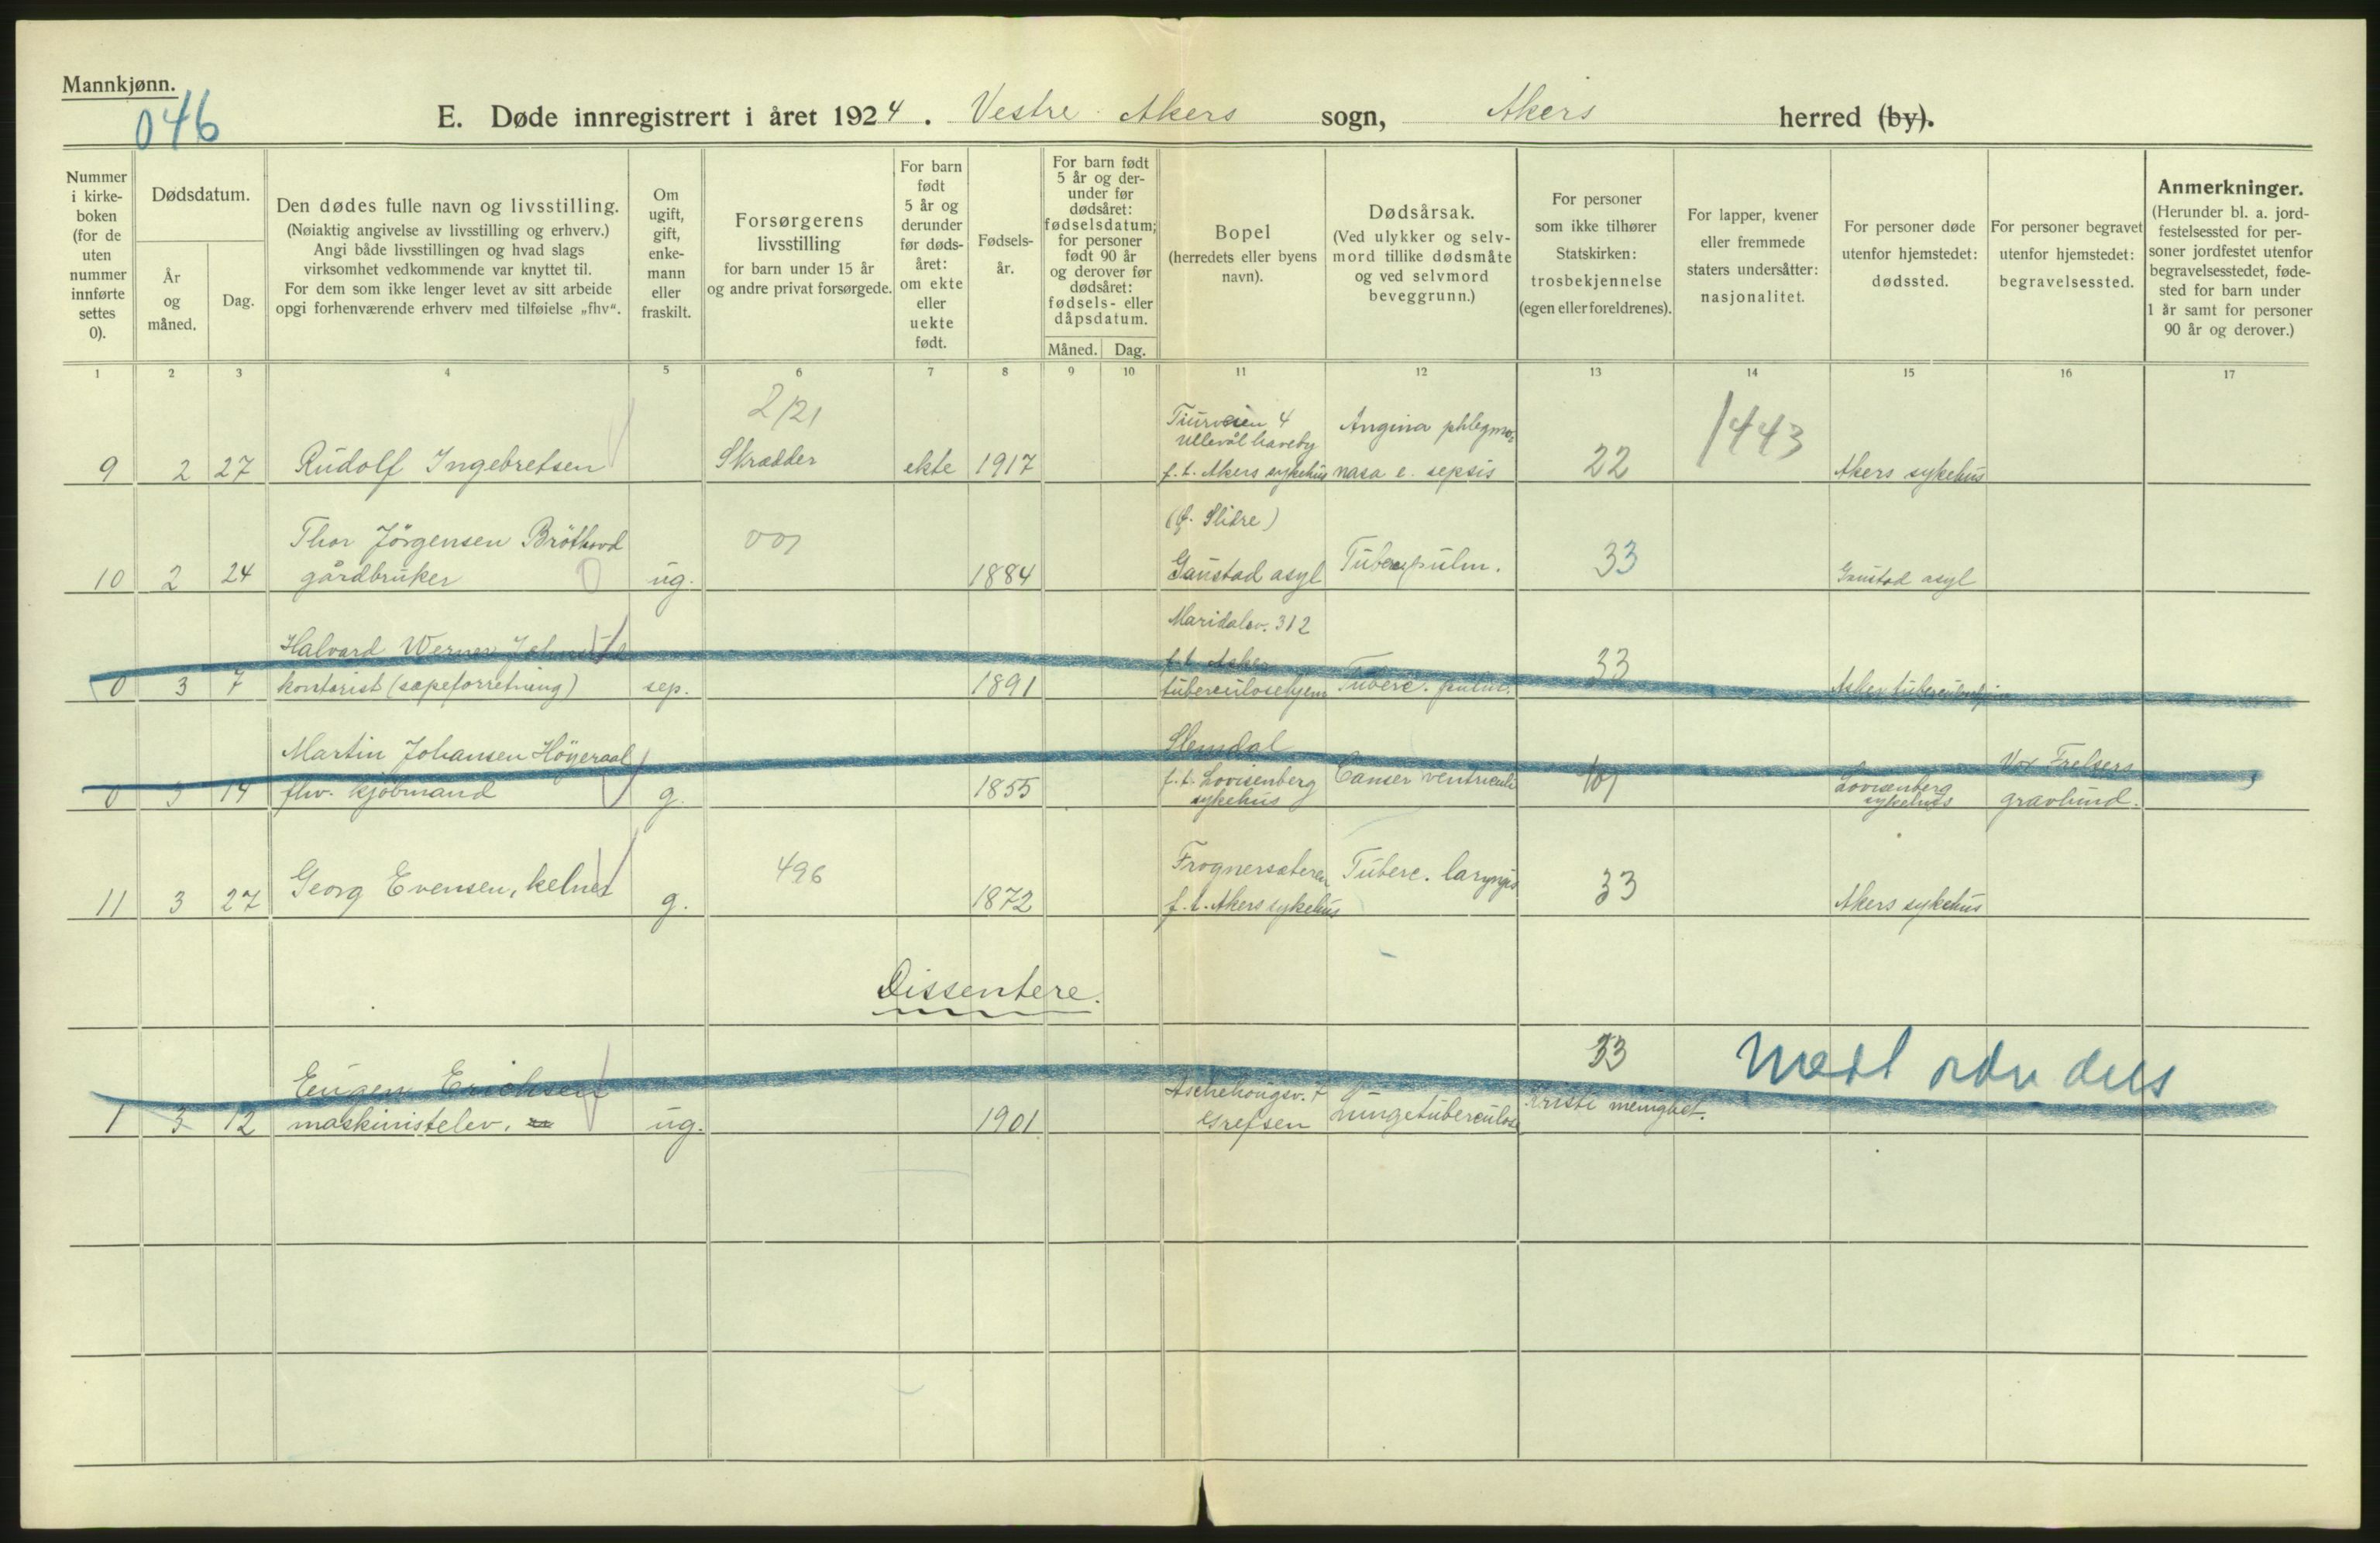 Mannkjønn.
046
E. Døde innregistrert i året 1924. Vestre Akers sogn, Akers herred (by).
Nummer i kirke- boken (for de uten nummer innførte settes 0).
Dødsdatum.
År og måned.
Dag.
Den dødes fulle navn og livsstilling.
(Nøiaktig angivelse av livsstilling og erhverv.)
Angi både livsstillingen og hvad slags
virksomhet vedkommende var knyttet til.
For dem som ikke lenger levet av sitt arbeide
opgi forhenværende erhverv med tilføielse „fhv“.
Om ugift, gift, enke- mann eller fraskilt.
Forsørgerens
livsstilling
for barn under 15 år
og andre privat forsørgede.
For barn født 5 år og derunder før døds- året: om ekte eller uekte født.
Fødsels- år.
For barn født 5 år og der- under før dødsåret: fødselsdatum; for personer født 90 år og derover før dødsåret: fødsels- eller dåpsdatum.
Måned.
Dag.
Bopel
(herredets eller byens
navn).
Dødsårsak.
(Ved ulykker og selv-
mord tillike dødsmåte
og ved selvmord
beveggrunn.)
For personer
som ikke tilhører
Statskirken:
trosbekjennelse
(egen eller foreldrenes).
For lapper, kvener
eller fremmede
staters undersåtter:
nasjonalitet.
For personer døde
utenfor hjemstedet:
dødssted.
For personer begravet
utenfor hjemstedet:
begravelsessted.
Anmerkninger.
(Herunder bl. a. jord-
festelsessted for per-
soner jordfestet utenfor
begravelsesstedet, føde-
sted for barn under
1 år samt for personer
90 år og derover.)
1 2 3 4 5 6 7 8 9 10 11 12 13 14 15 16 17
2/21
Tiurveien 4
Ullevål haveby
Angina phlegmo-
1443
9 2 27 Rudolf Ingebretsen Skrædder ekte 1917 f.t. Akers sykehus nasa e. sepsis 22 Akers sykehus
(f. Slidre)
Thor Jörgensen Bröthovd 001
10 2 24 gårdbruker 0 ug. 1884 Gaustad asyl Tuberc. pulm. 33 Gaustad asyl
Maridalsv. 312
Halvard Werner
f.t. Asker 33
0 3 7 kontorist (sæpeforretning) sep. 1891 tuberculosehjem Tuberc. pulm. Asker tuberculosehjem
Martin Johansen Höyeraal Slemdal Vor Frelsers
0 3 14 fhv. kjöbmand g. 1855 f.t. Lovisenberg sykehus Cancer ventriculi 101 Lovisenberg sykehus gravlund.
496 Frognersæteren
11 3 27 Georg Evensen, kelner g. 1872 f.t. Akers sykehus Tuberc. laryngis 33 Akers sykehus
Dissentere.
33
Eugen Erichsen Aschehougsv. Kristi menighet.
1 3 12 maskinistelev. ug. 1901 Grefsen Lungetuberculose